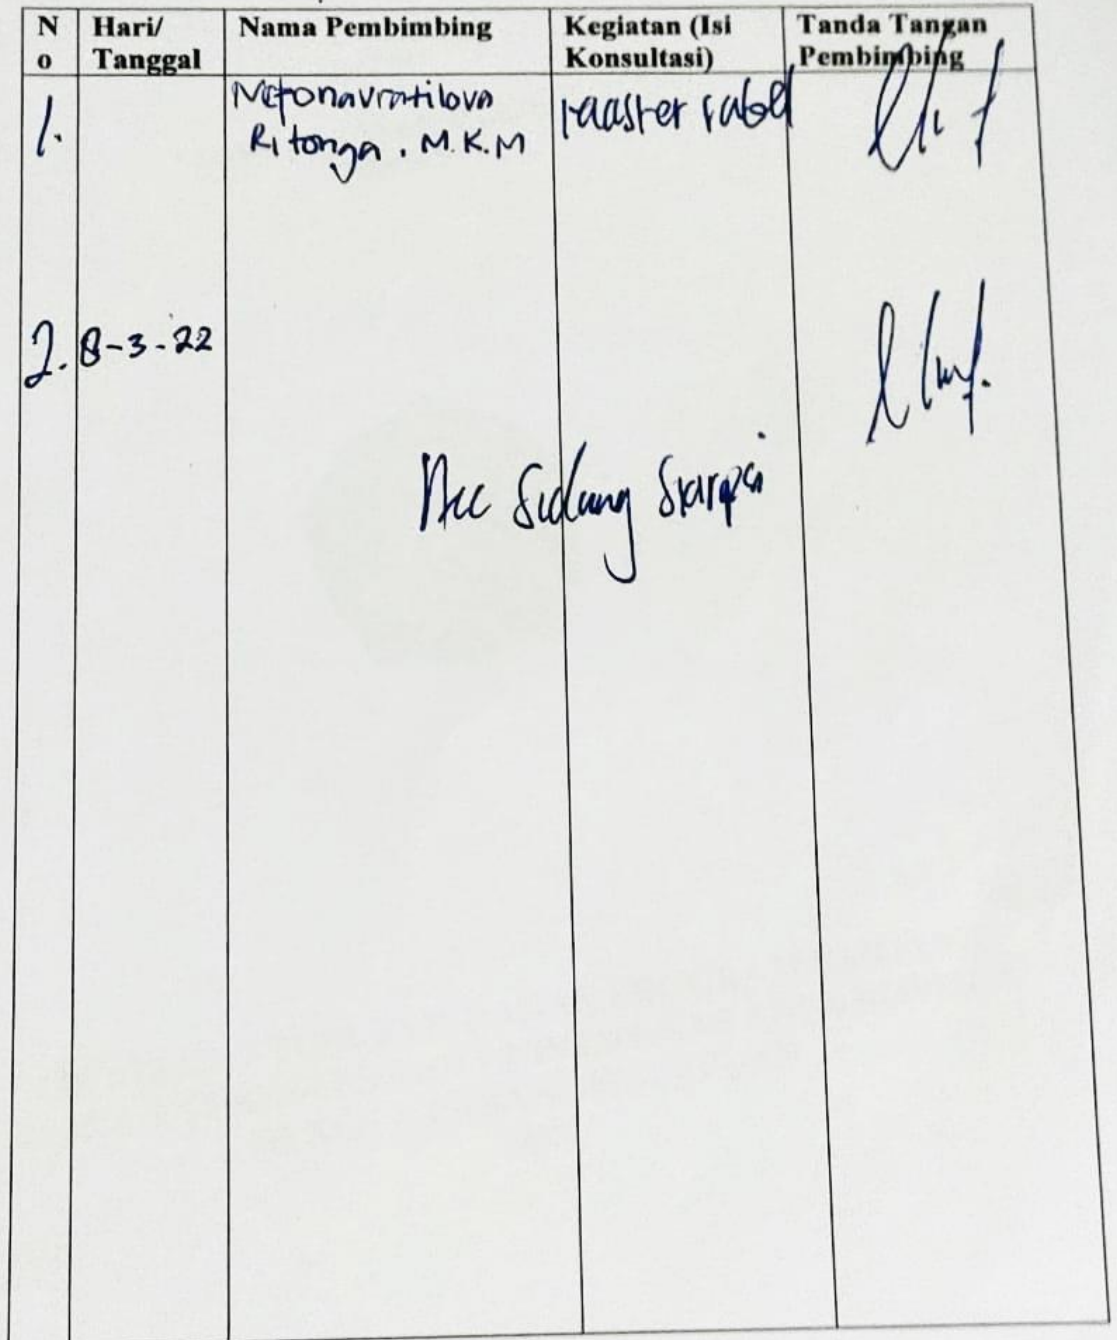 No Hari/ Tanggal Nama Pembimbing Kegiatan (Isi Konsultasi) Tanda Tangan Pembimbing
1. Nefonavratilova master tabel
Ritonga, M.K.M
2. 8-3-22
Acc Sidang Skripsi